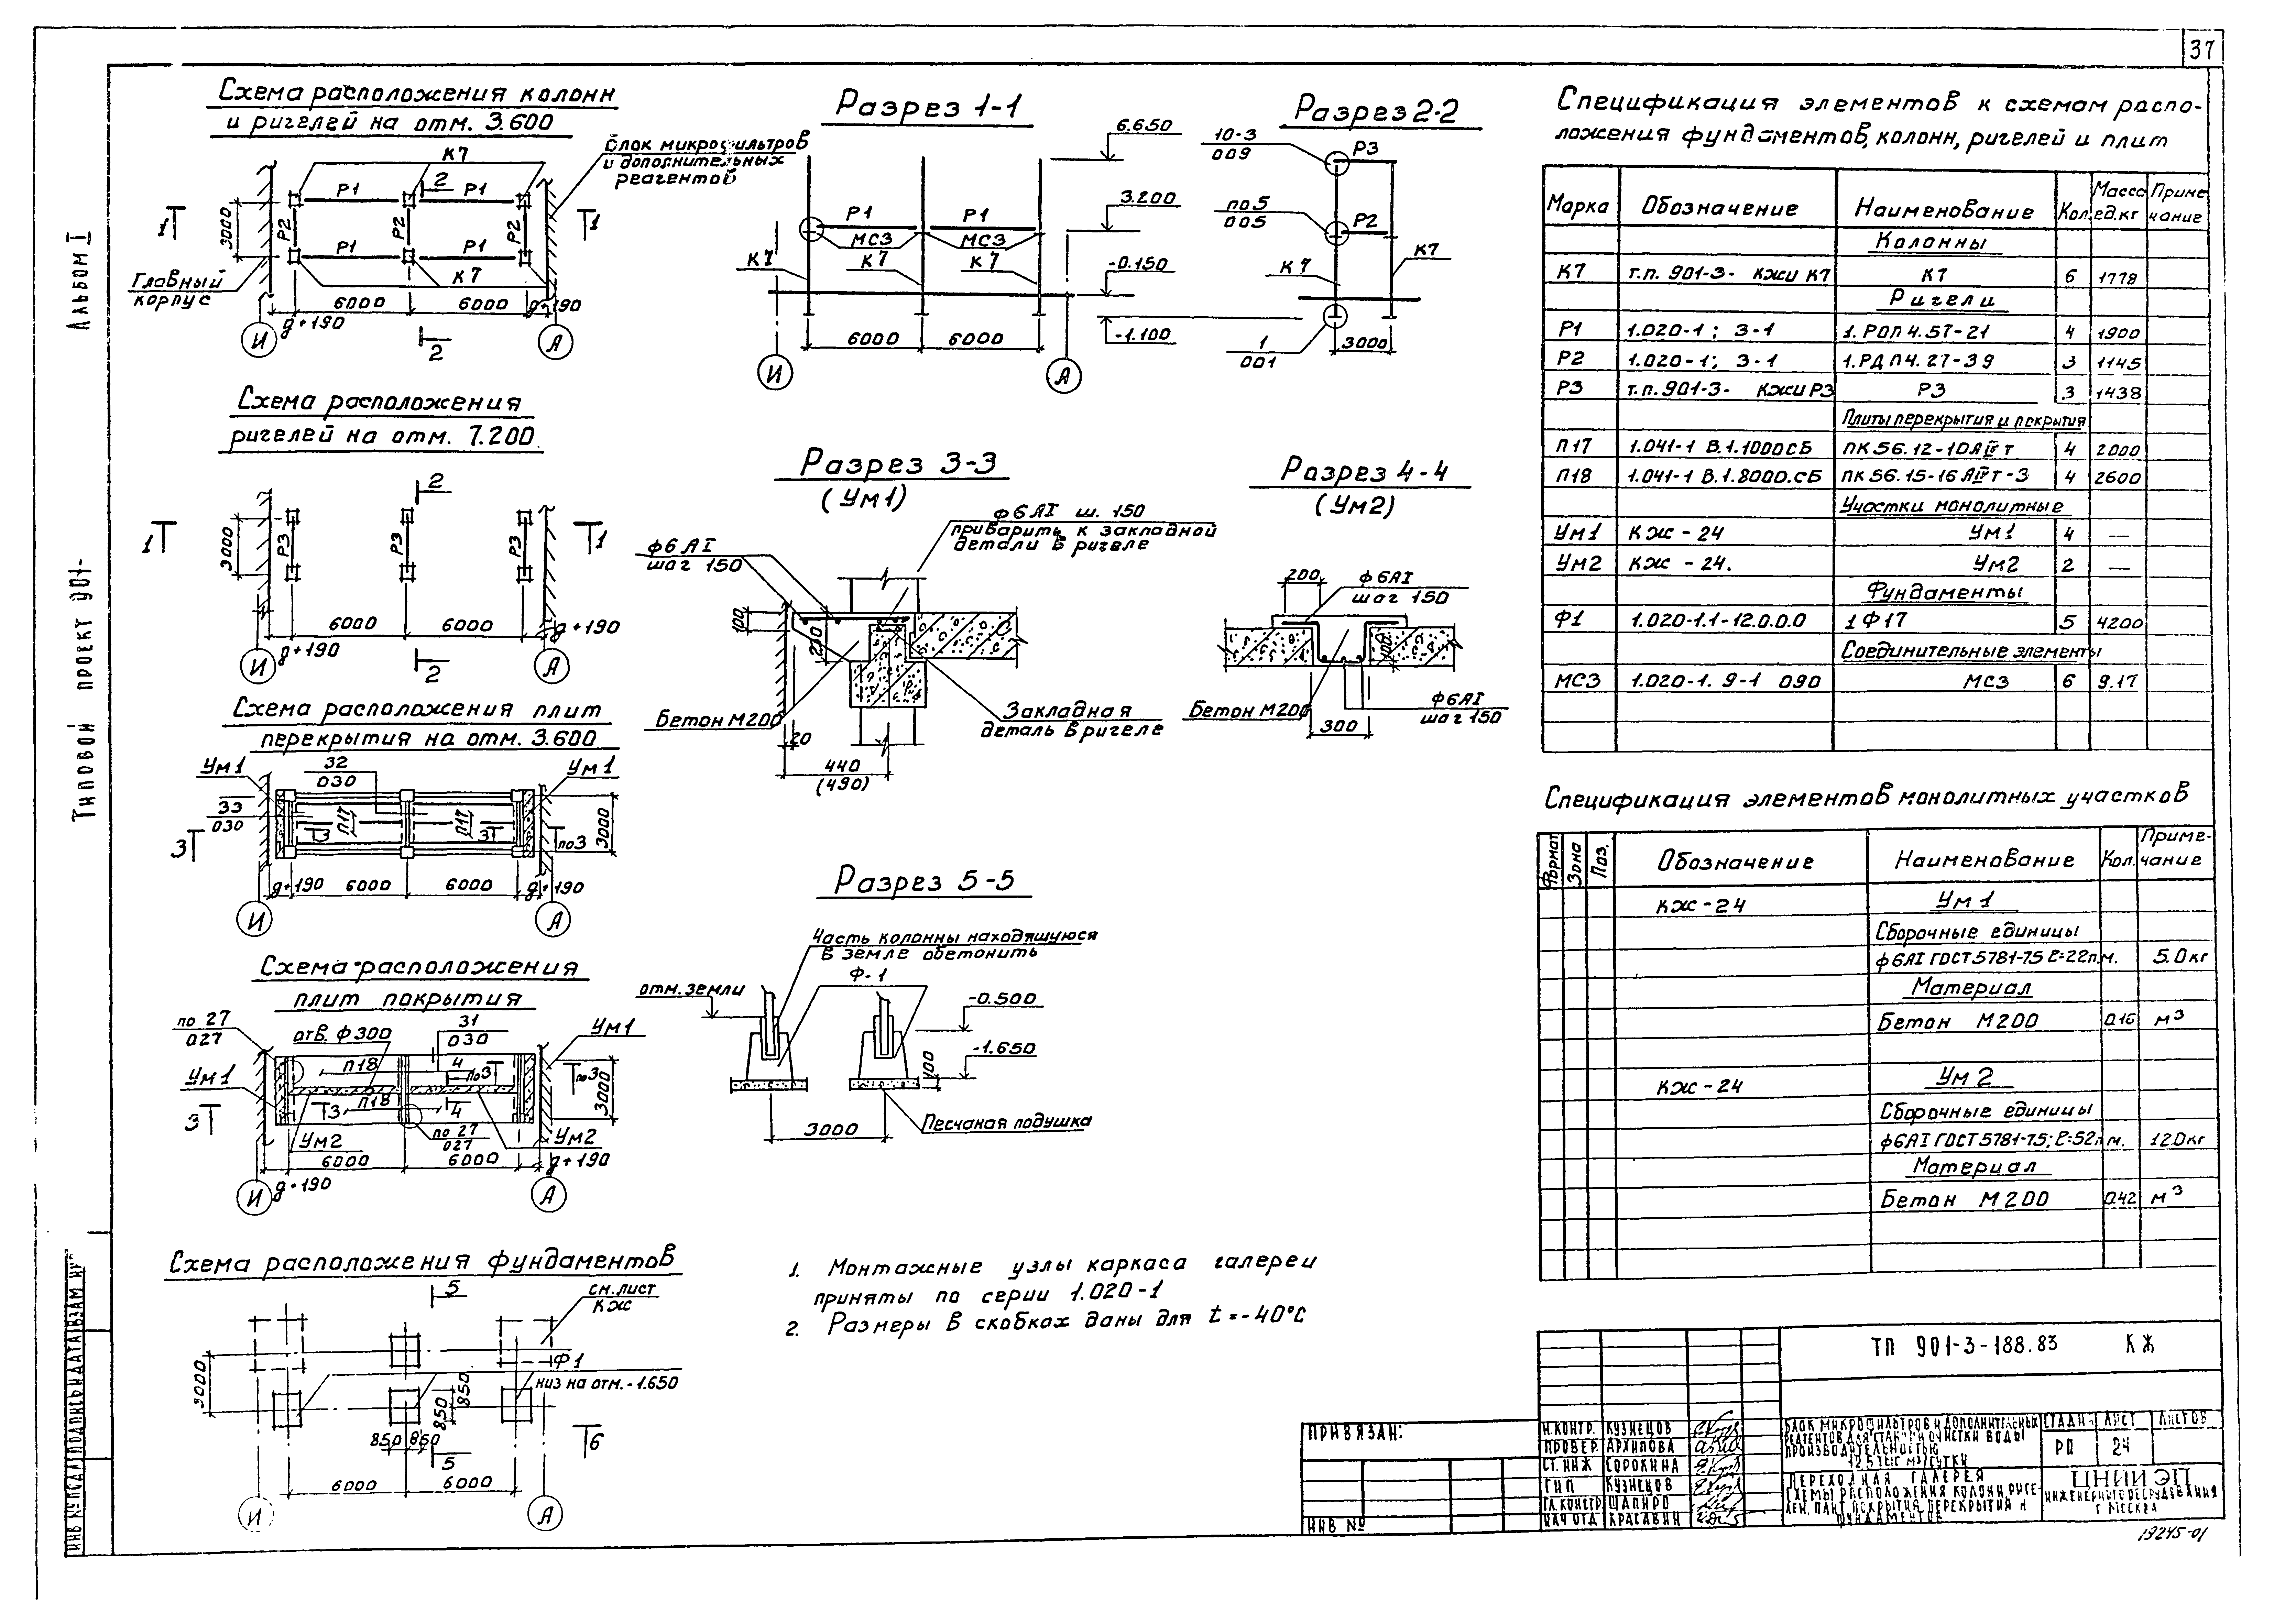 37
Альбом I
Типовой проект 901-
Схема расположения колонн
и ригелей на отм. 3.600
К7
Блок микрофильтров
и дополнительных
реагентой
2
Р1 Р1
1 1
3000
Р2 Р2 Р2
Р1 Р1
К7
Главный
корпус
6000 6000
д+190 д+190
И А
2
Схема расположения
ригелей на отм. 7.200
2
1 1
3000
Р3 Р3 Р3
6000 6000
д+190 д+190
И А
2
Схема расположения плит
перекрытия на отм. 3.600
Ум1
32
030
Ум1
33
030
П17 П17
3 3 3 по3
3000
д+190 6000 6000 д+190
И А
Схема расположения
плит покрытия
по 27
027
отв. ф300
31
030
Ум1
П18 4 по3 по3
Ум1
3 3 П18 4
3000
Ум2
по 27
027
Ум2
6000 6000
д+190 д+190
И А
Схема расположения фундаментов
5
см.лист
КЖ
3000
Ф1
низ на отм. -1.650
850 850
850 850
5
6
6000 6000
И А
Разрез 1-1
6.650
3.200
Р1 Р1
МС3 МС3
К7 К7 К7
-0.150
-1.100
6000 6000
И А
Разрез 2-2
10-3
009
Р3
по 5
005
Р2
К7 К7
1
001
3000
Разрез 3-3
(Ум1)
ф6АI ш. 150
приварить к закладной
детали в ригеле
ф6АI
шаг 150
100
Бетон М200
Закладная
деталь в ригеле
20
440
(490)
Разрез 4-4
(Ум2)
200
ф6АI
шаг 150
100
Бетон М200
ф6АI
шаг 150
300
Разрез 5-5
Часть колонны находящуюся
в земле обетонить
Ф-1
отм. земли
-0.500
-1.650
100
3000
Песчаная подушка
1. Монтажные узлы каркаса галереи
приняты по серии 1.020-1
2. Размеры в скобках даны для t=-40°С
Спецификация элементов к схемам распо-
ложения фундаментов, колонн, ригелей и плит
Марка Обозначение Наименование Кол. Масса ед.кг Приме чание
Колонны
К7 т.п. 901-3- КЖИ К7 К7 6 1778
Ригели
Р1 1.020-1; 3-1 1.РОП 4.57-21 4 1900
Р2 1.020-1; 3-1 1.РДП4.27-39 3 1145
Р3 т.п. 901-3- КЖИ Р3 Р3 3 1438
Плиты перекрытия и покрытия
П17 1.041-1 В.1.1000СБ ПК56.12-10АIVТ 4 2000
П18 1.041-1 В.1.8000.СБ ПК56.15-16АIVТ-3 4 2600
Участки монолитные
Ум1 КЖ-24 Ум1 4 —
Ум2 КЖ-24. Ум2 2 —
Фундаменты
Ф1 1.020-1.1-12.0.0.0 1Ф17 5 4200
Соединительные элементы
МС3 1.020-1. 9-1 090 МС3 6 9.17
Спецификация элементов монолитных участков
Формат Зона Поз. Обозначение Наименование Кол. Приме-чание
КЖ-24 Ум1
Сборочные единицы
ф6АI ГОСТ5781-75 ℓ=22п.м. 5.0кг
Материал
Бетон М200 0.16 м³
КЖ-24 Ум2
Сборочные единицы
ф6АI ГОСТ5781-75; ℓ=52п.м. 12.0кг
Материал
Бетон М200 0.42 м³
ТП 901-3-188.83 КЖ
Привязан:
Инв №
Н.контр. Кузнецов
Провер. Архипова
Ст. инж Сорокина
ГИП Кузнецов
Гл.констр Шапиро
Нач отд Красавин
Блок микрофильтров и дополнительных
реагентов для станции очистки воды
производительностью
12.5 тыс м³/сутки
Стадия Лист Листов
РП 24
Переходная галерея
Схемы расположения колонн, риге-
лей, плит покрытия, перекрытия и
фундаментов
ЦНИИЭП
инженерного оборудования
г Москва
19245-01
Инв № подл Подпись и дата Взам инв